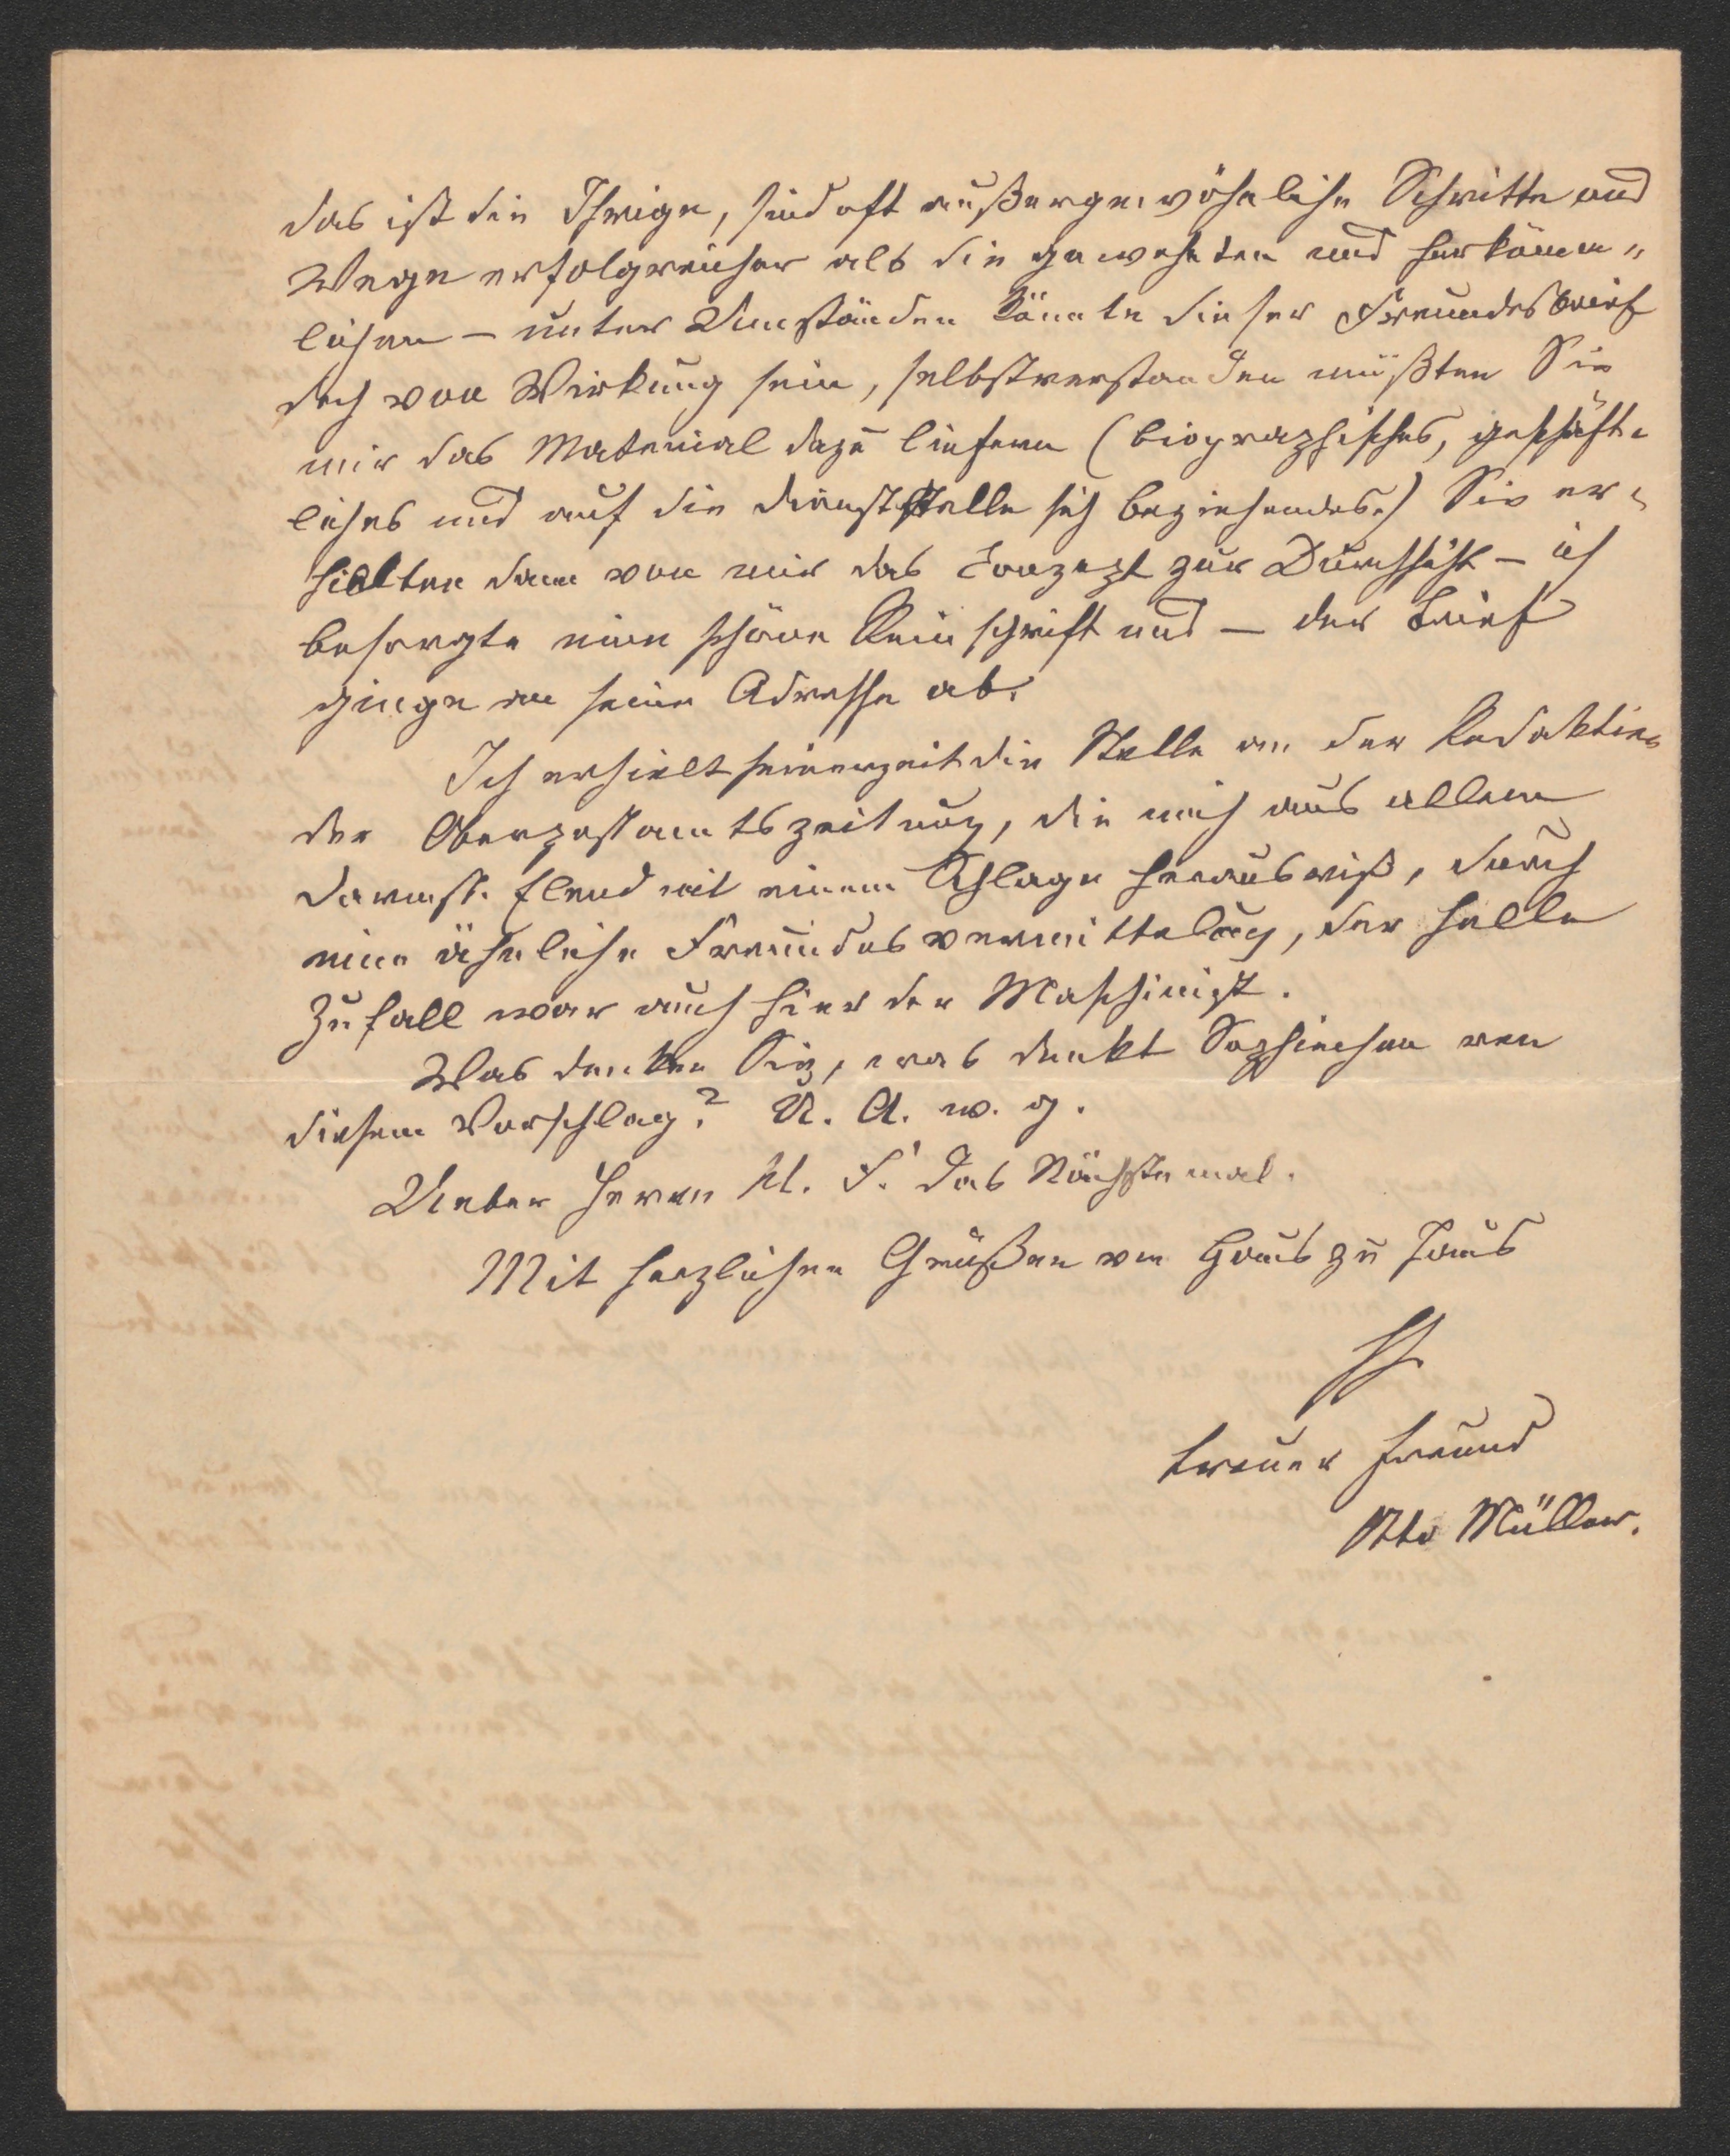 das ist die Ihrige, sind oft außergewöhnliche Schritte und
Wege erfolgreicher als die gewohnten und herkömm„
lichen – unter Umständen könnte dieser Freundesbrief
doch von Wirkung sein, selbstverstanden müßten Sie
mir das Material dazu liefern (biographisches, geschäft-
liches und auf die Dienststelle sich beziehendes.) Sie er-
hielten dann von mir das Conzept zur Durchsicht – ich
besorgte eine schöne Reinschrift und – der Brief
ginge an seine Adresse ab.
Ich erhielt seinerzeit die Stelle an der Redaktion
der Oberpostamtszeitung, die mich aus allem
Darmst. Elend mit einem Schlage herausriß, durch
eine ähnliche Freundesvermittelung, der helle
Zufall war auch hier der Maschinist.
Was denken Sie, was denkt Sophiechen von
diesem Vorschlag? U. A. w. g.
Ueber Herrn M. F. das Nächstemal.
Mit herzlichen Grüßen von Haus zu Haus
Ihr
treuer Freund
Otto Müller.